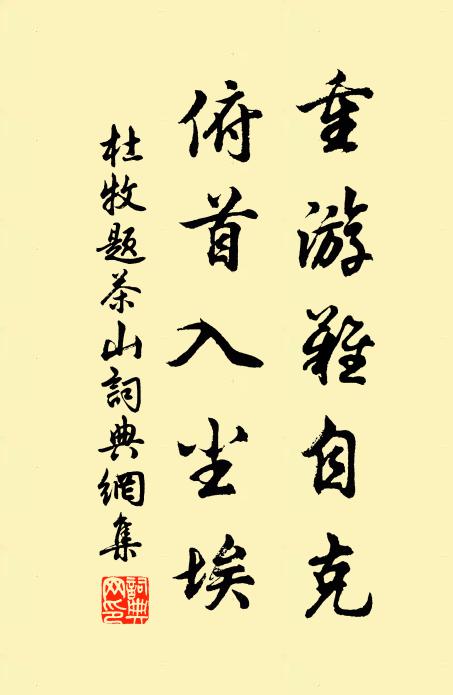 重游难自克
俯首入尘埃
杜牧题茶山詞典網集
詞典网印